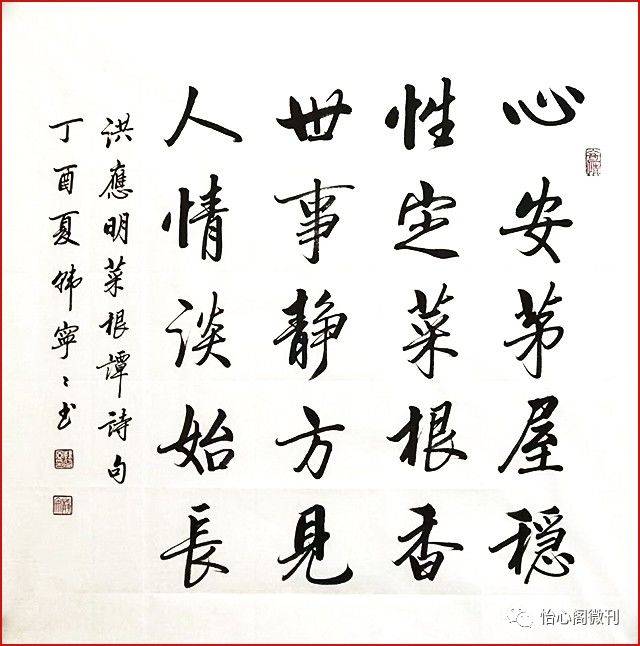 心安茅屋穩
性定菜根香
世事静方見
人情谈始長
洪應明菜根譚詩句
丁酉夏韩寧〻书
怡心阁微刊